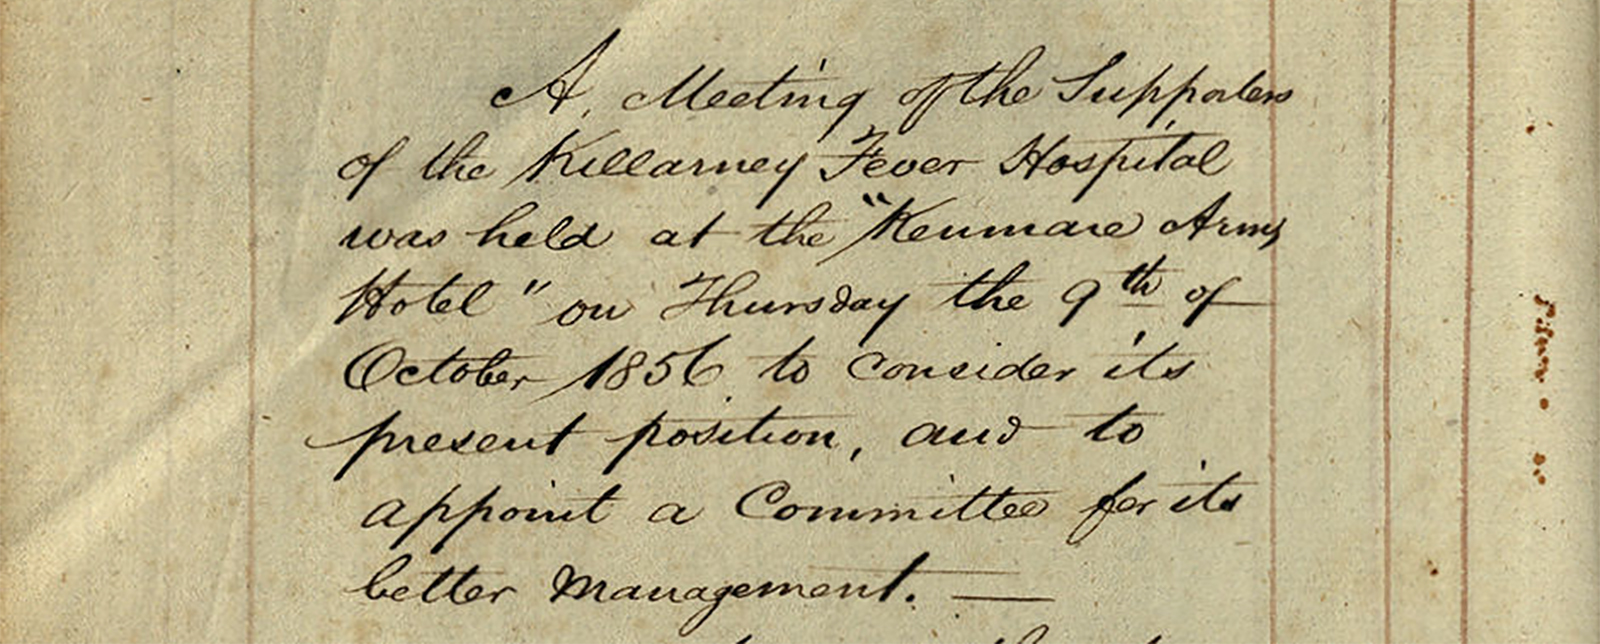 A Meeting of the Supporters
of the Killarney Fever Hospital
was held at the "Kenmare Arms
Hotel" on Thursday the 9th of
October 1856 to consider its
present position, and to
appoint a Committee for its
better Management. —